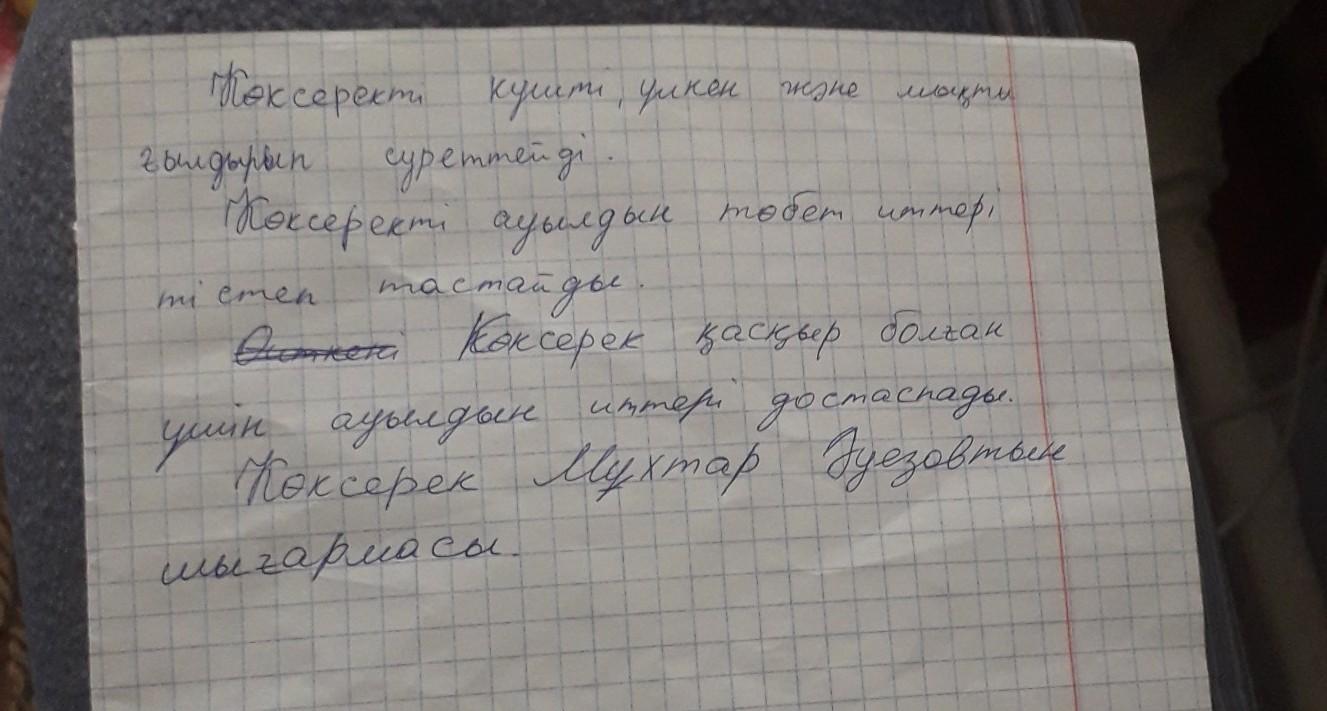 Көксеректі күшті, үлкен және мықты
ғылдырып суреттейді.
Көксеректі ауылдын төбет иттері
тістеп тастайды.
Өйткені Көксерек қасқыр болған
үшін ауылдын иттері достаспады.
Көксерек Мұхтар Әуезовтын
шығармасы.